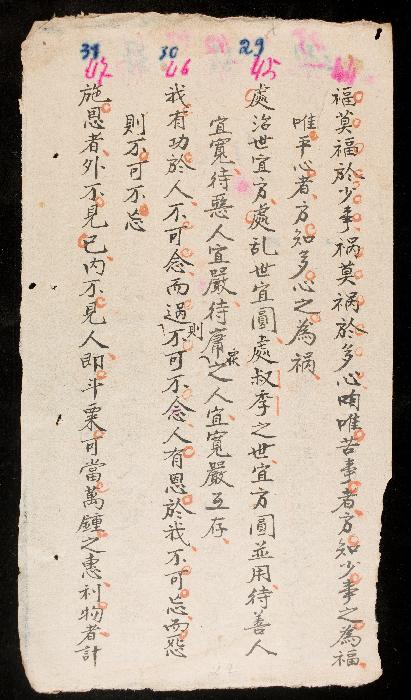 福莫福於少事禍莫禍於多心唯苦事者方知少事之為福
唯平心者方知多心之為禍
29 45
處治世宜方處乱世宜圓處叔季之世宜方圓並用待善人
宜寬待惡人宜嚴待庸眾之人宜寬嚴互存
30 46
我有功於人不可念而過則不可不念人有恩於我不可忘而怨
則不可不忘
31 47
施恩者外不見己內不見人即斗粟可當萬鍾之惠利物者計